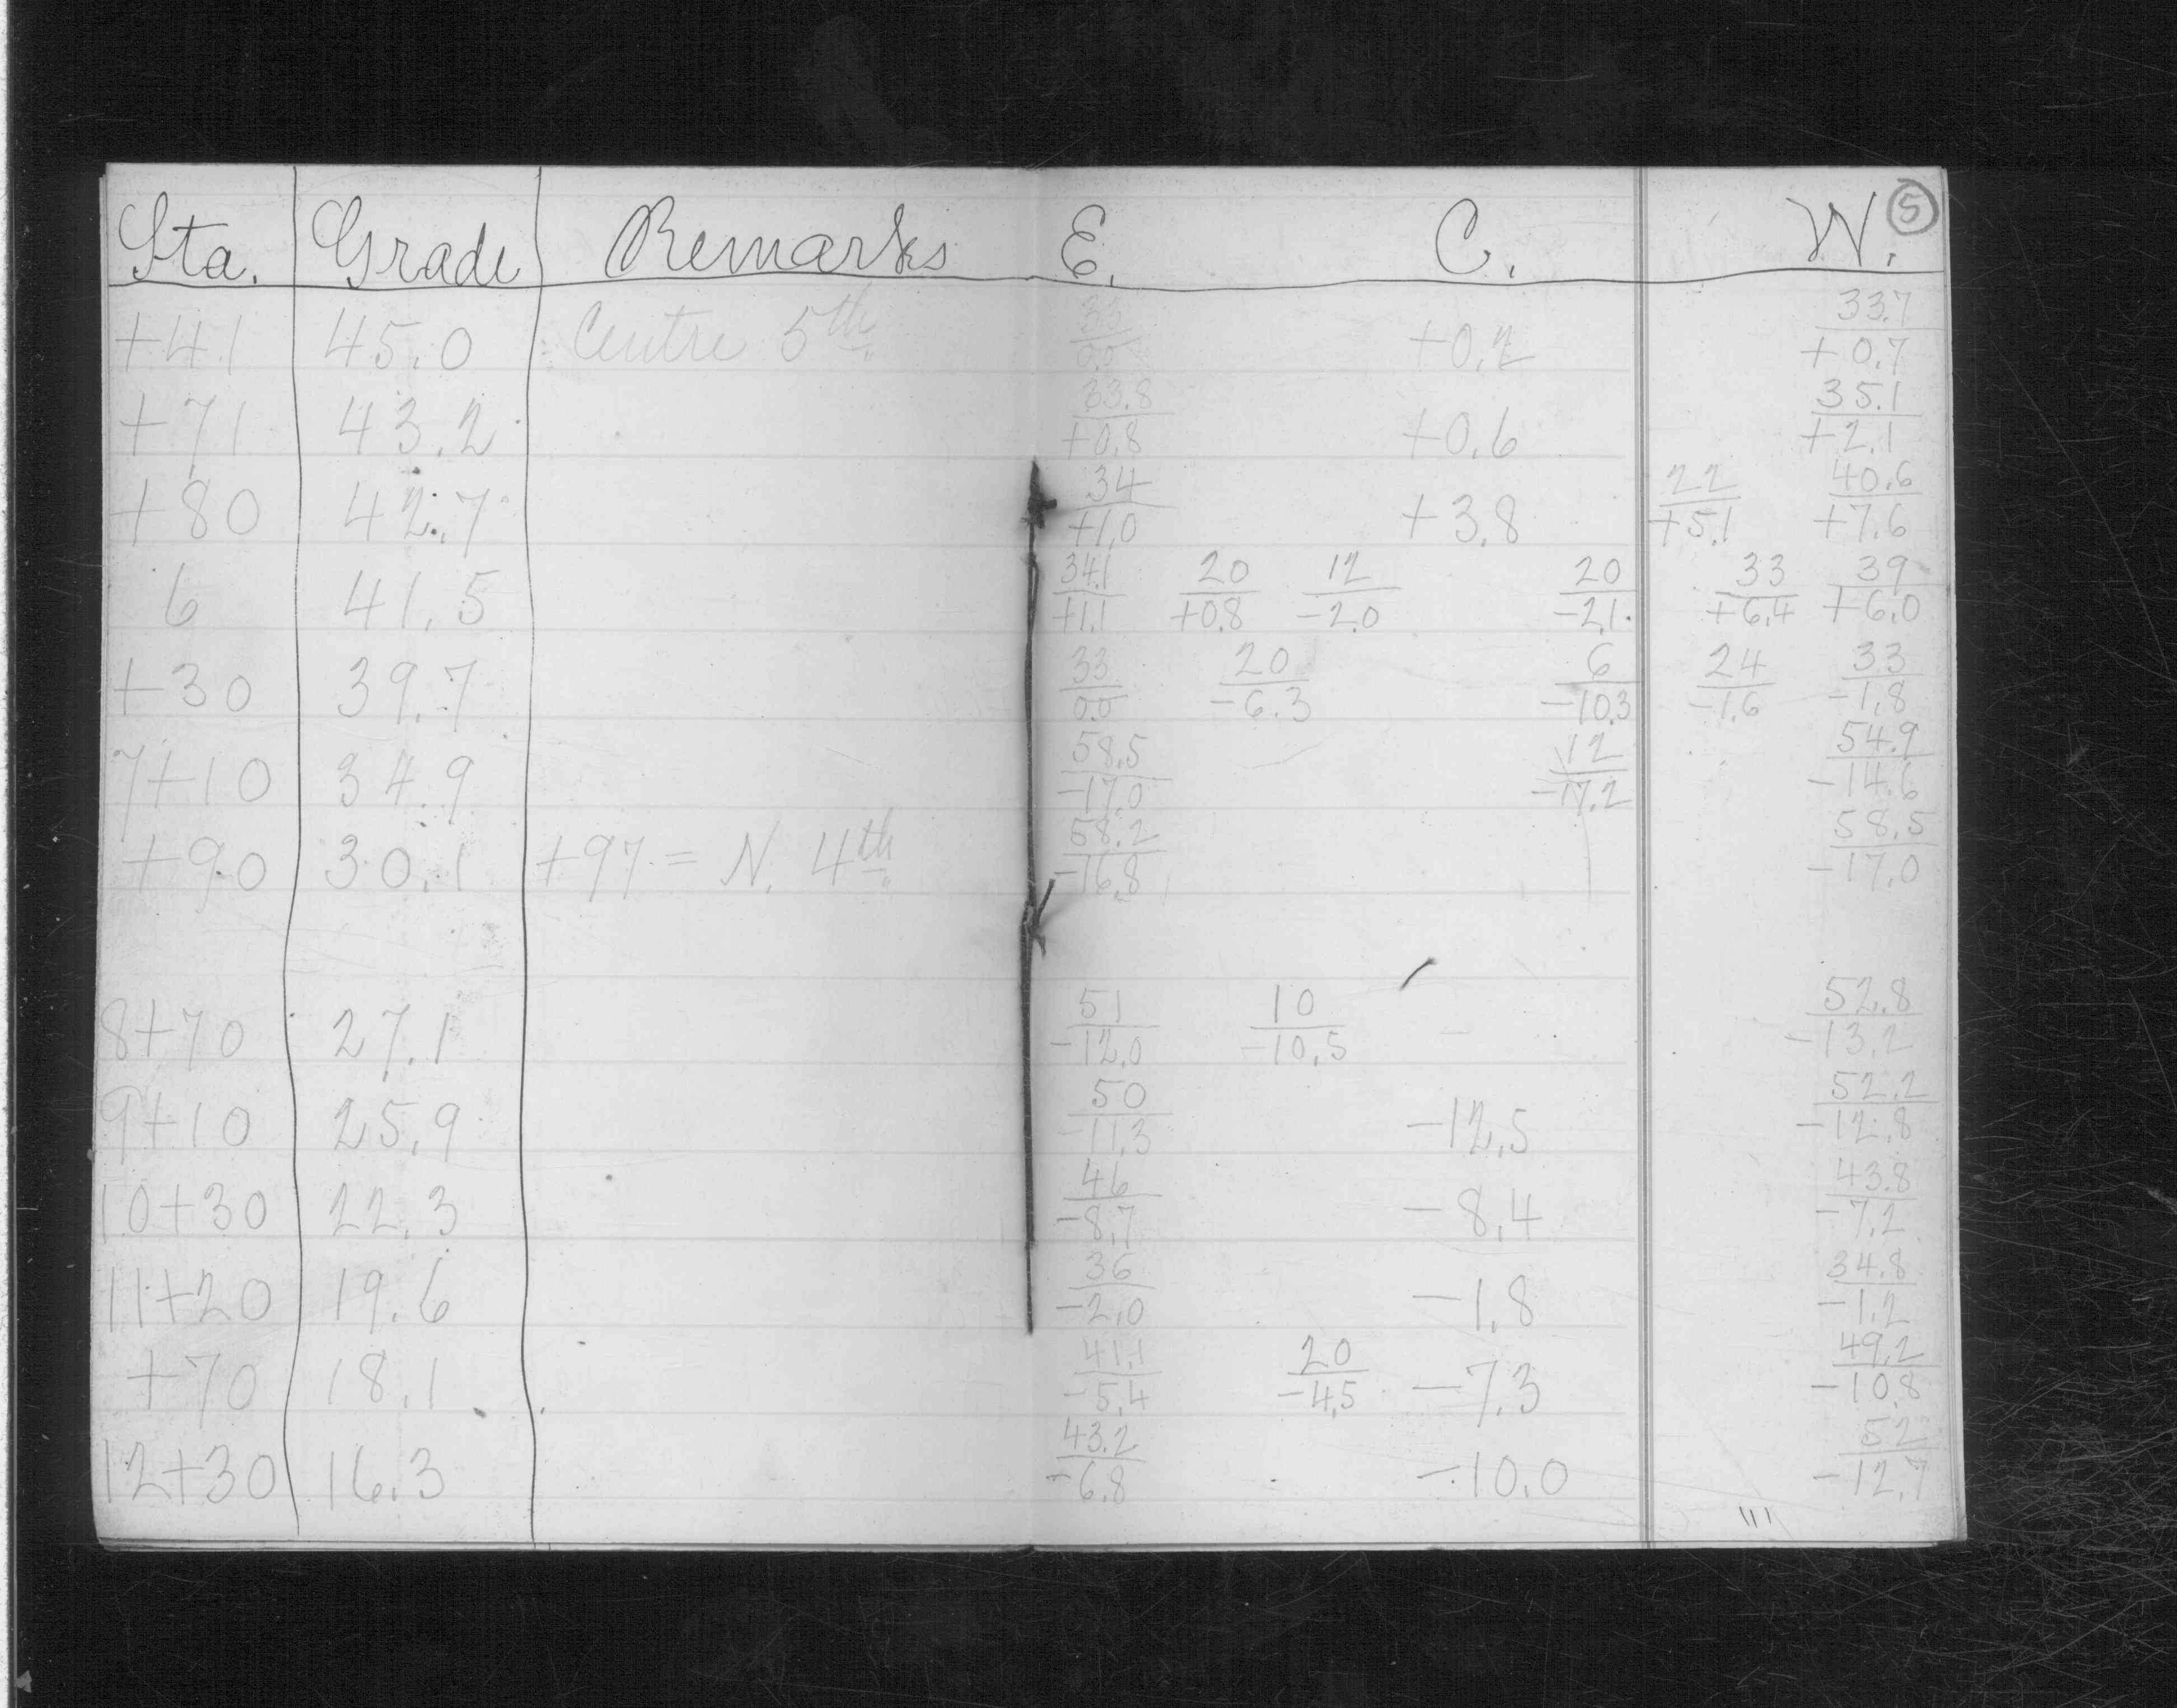 Sta. Grade Remarks E. C. W. 5
+41 45.0 Centre 5th 33/0.0 +0.2 33.7/+0.7
+71 43.2 33.8/+0.8 +0.6 35.1/+2.1
+80 42.7 34/+1.0 +3.8 22/+5.1 40.6/+7.6
6 41.5 34.1/+1.1 20/+0.8 12/-2.0 20/-2.1 33/+6.4 39/+6.0
+30 39.7 33/0.0 20/-6.3 6/-10.3 24/-1.6 33/-1.8
7+10 34.9 58.5/-17.0 12/-17.2 54.9/-14.6
+90 30.1 +97 = N. 4th 58.2/-16.8 58.5/-17.0
8+70 27.1 51/-12.0 10/-10.5 52.8/-13.2
9+10 25.9 50/-11.3 -12.5 52.2/-12.8
10+30 22.3 46/-8.7 -8.4 43.8/-7.2
11+20 19.6 36/-2.0 -1.8 34.8/-1.2
+70 18.1 41.1/-5.4 20/-4.5 -7.3 49.2/-10.8
12+30 16.3 43.2/-6.8 -10.0 52/-12.7